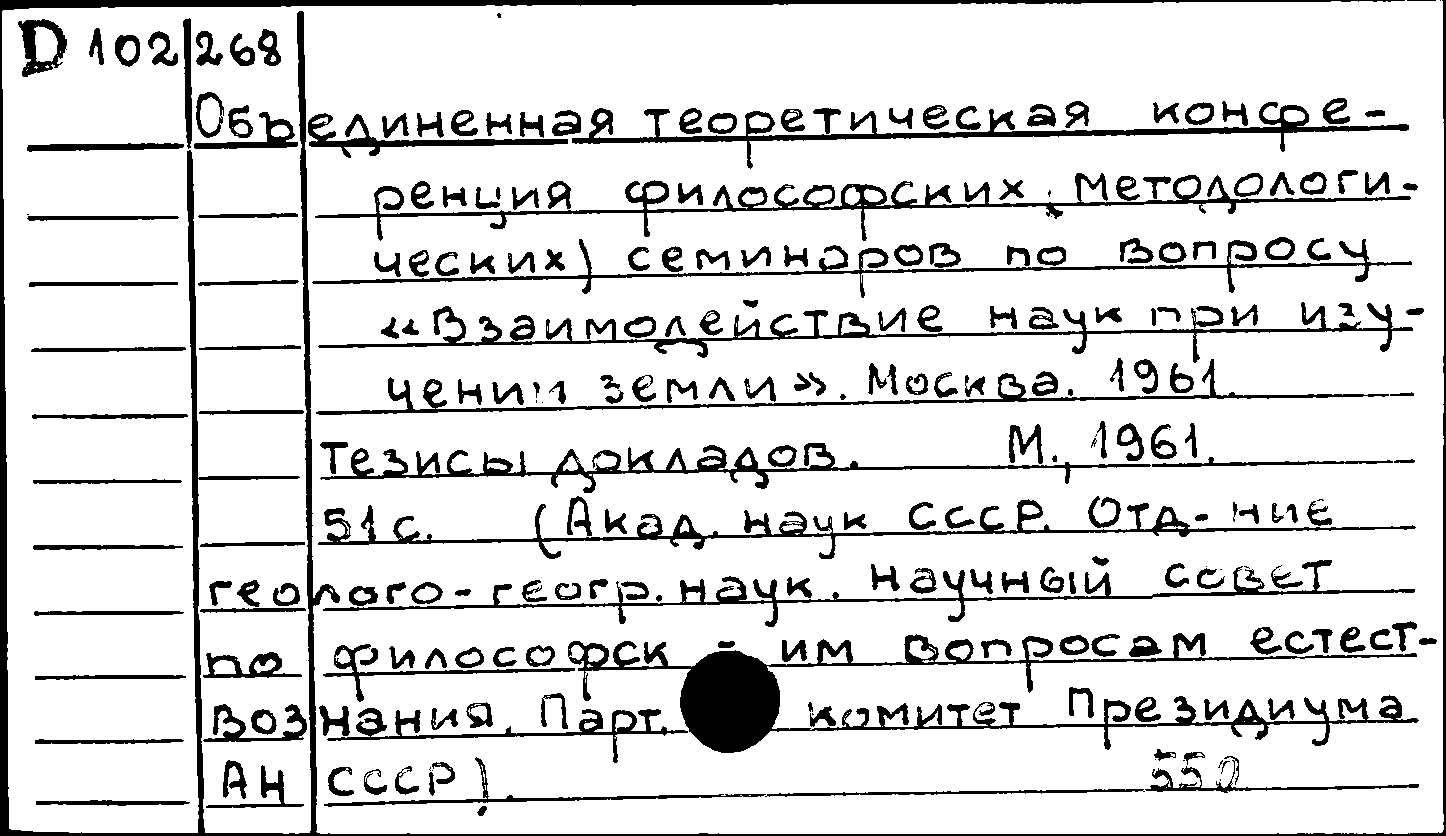 D 102 268
Объединенная теоретическая конфе-
ренция философских, методологи-
ческих) семинаров по вопросу
«Взаимодействие наук при изу-
чении земли». Москва. 1961.
Тезисы докладов. М., 1961.
51 с. (Акад. наук СССР. Отд-ние
геолого-геогр. наук. Научный совет
по философск - им вопросам естест-
вознания. Парт. комитет Президиума
АН СССР).
550